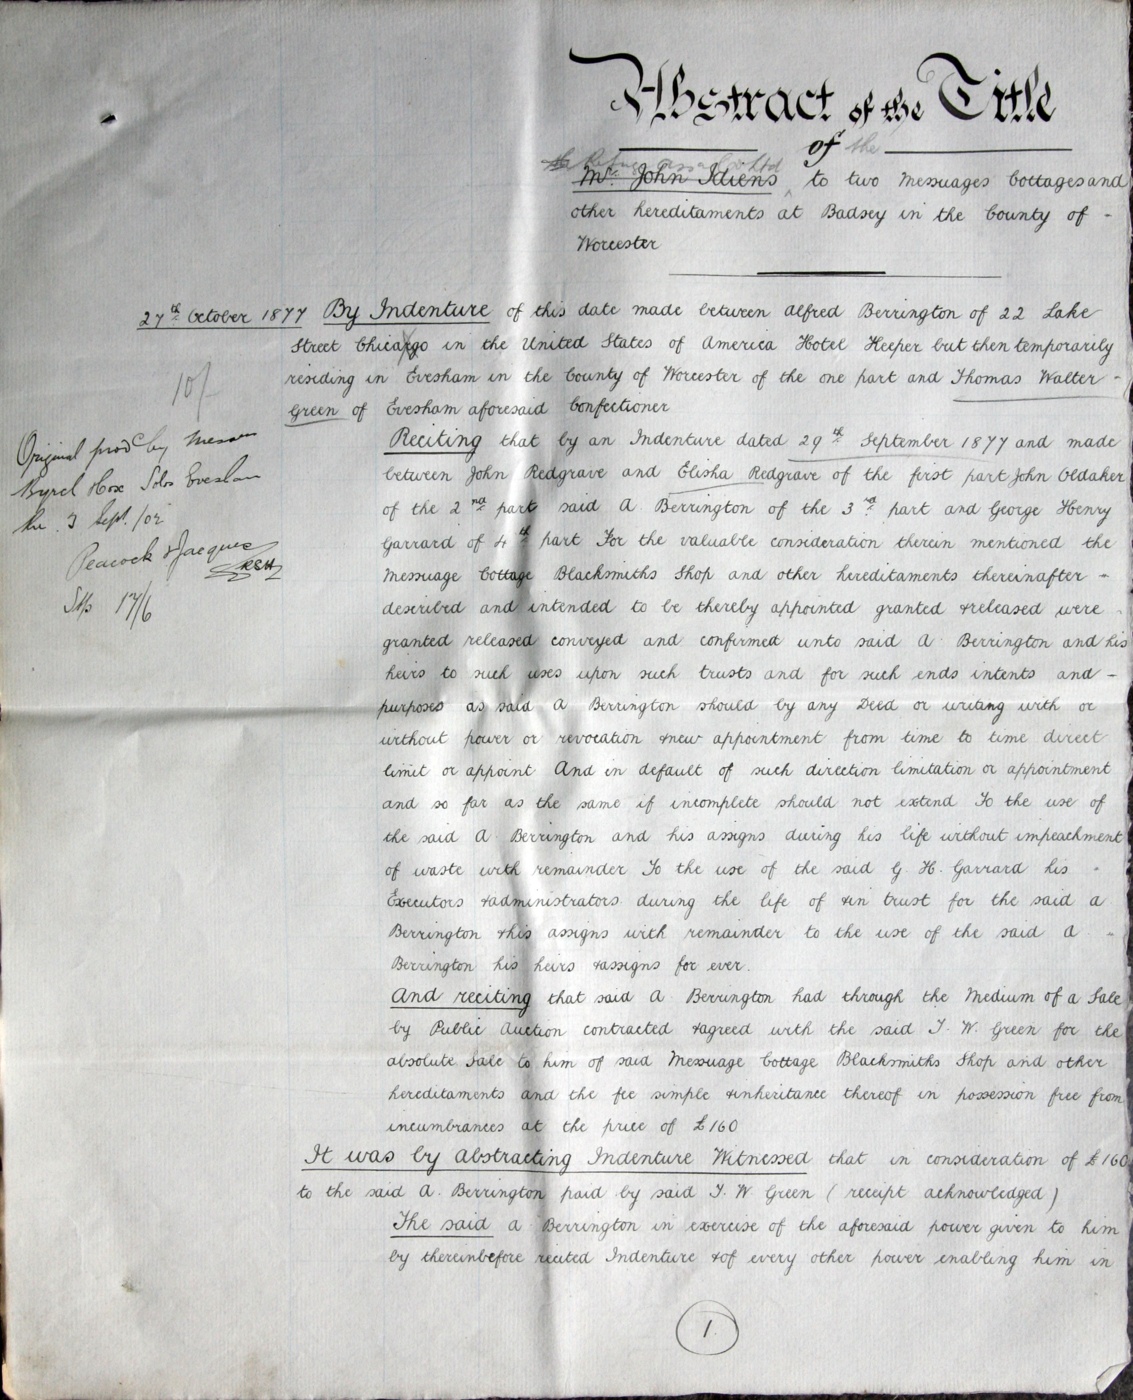 Abstract of the Title
of the
Mr. John Idiens to two Messuages Cottages and
other hereditaments at Badsey in the County of -
Worcester
27th October 1877 By Indenture of this date made between Alfred Berrington of 22 Lake
Street Chicargo in the United States of America Hotel Keeper but then temporarily
residing in Evesham in the County of Worcester of the one part and Thomas Walter -
Green of Evesham aforesaid Confectioner
10/-
Original prod by Messrs
Byrch Cox Solrs Evesham
the 3 Sept. /02
Peacock & Jacques
17/6
Reciting that by an Indenture dated 29th September 1877 and made
between John Redgrave and Elisha Redgrave of the first part John Oldaker
of the 2nd part said A Berrington of the 3rd part and George Henry
Garrard of 4th part For the valuable consideration therein mentioned the
Messuage Cottage Blacksmiths Shop and other hereditaments thereinafter -
described and intended to be thereby appointed granted & released were -
granted released conveyed and confirmed unto said A Berrington and his
heirs to such uses upon such trusts and for such ends intents and -
purposes as said A Berrington should by any Deed or writing with or
without power or revocation & new appointment from time to time direct
limit or appoint And in default of such direction limitation or appointment
and so far as the same if incomplete should not extend To the use of
the said A Berrington and his assigns during his life without impeachment
of waste with remainder To the use of the said G. H. Garrard his -
Executors & administrators during the life of & in trust for the said A
Berrington & his assigns with remainder to the use of the said A -
Berrington his heirs & assigns for ever.
And reciting that said A Berrington had through the Medium of a Sale
by Public Auction contracted & agreed with the said T. W. Green for the
absolute Sale to him of said Messuage Cottage Blacksmiths Shop and other
hereditaments and the fee simple & inheritance thereof in possession free from
incumbrances at the price of £160
It was by Abstracting Indenture Witnessed that in consideration of £160
to the said A. Berrington paid by said T. W. Green (receipt acknowledged)
The said A Berrington in exercise of the aforesaid power given to him
by thereinbefore recited Indenture & of every other power enabling him in
1